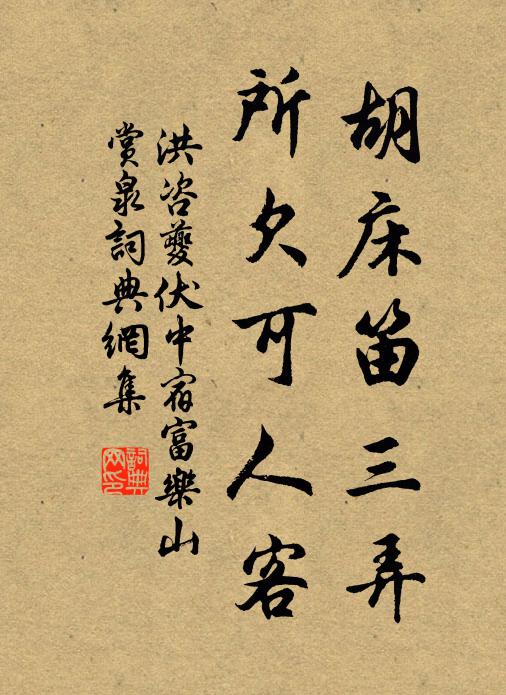 胡床笛三弄
所欠可人客
洪咨夔伏中宿富樂山
賞泉詞典網集
詞典
网印